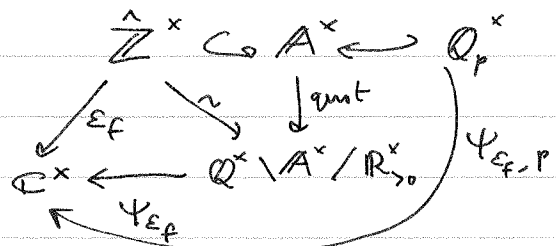 Ẑ^× ↪ 𝔸^× ↩ ℚ_p^×
ε_f ~ ↓ quot ψ_{ε_f, p}
ℂ^× ← ℚ^× \ 𝔸^× / ℝ^×_{>0}
ψ_{ε_f}